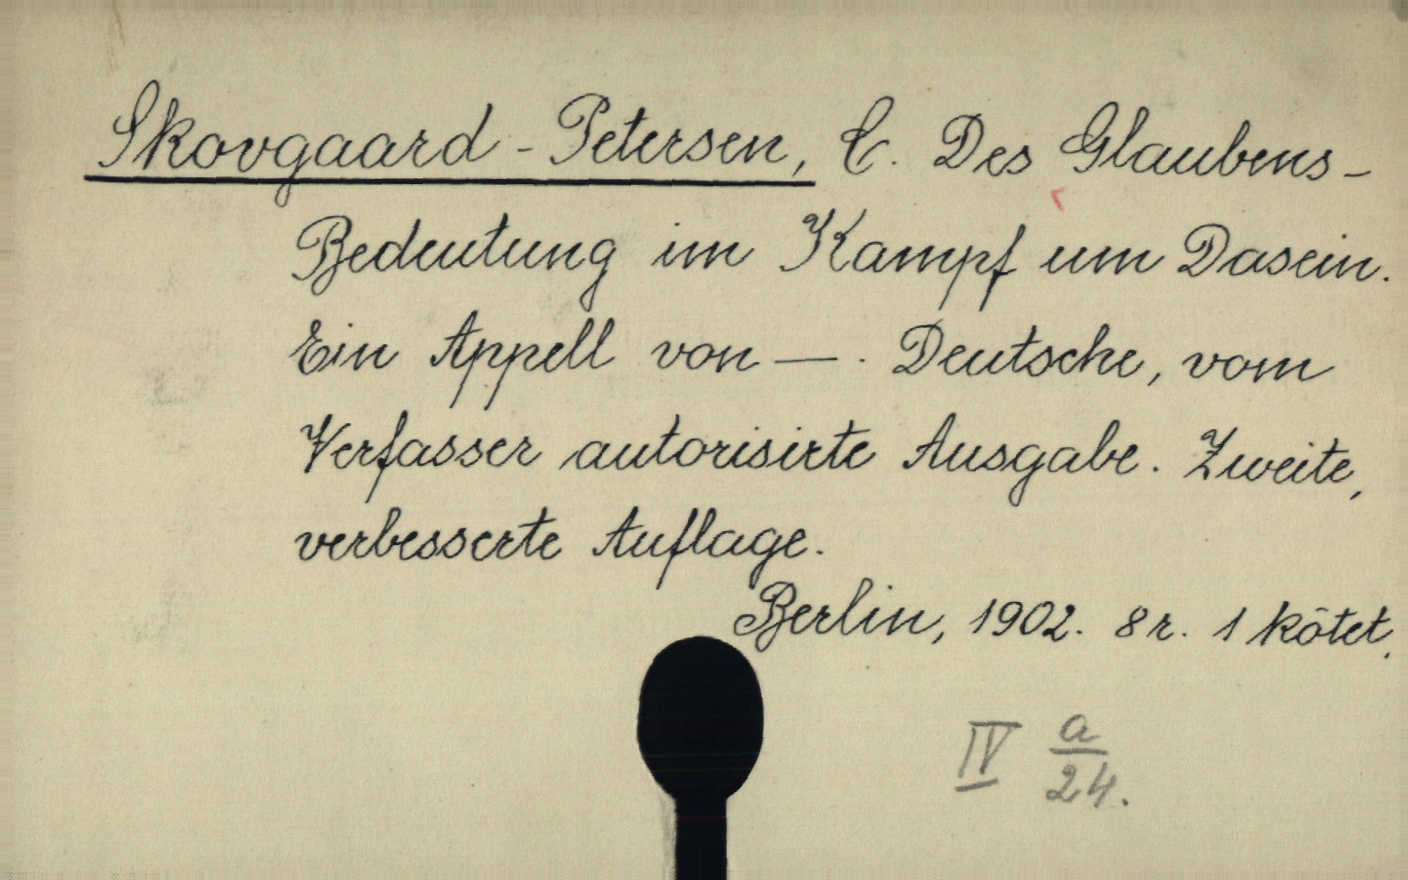 Skovgaard-Petersen, C. Des Glaubens-
Bedeutung im Kampf um Dasein.
Ein Appell von —. Deutsche, vom
Verfasser autorisirte Ausgabe. Zweite,
verbesserte Auflage.
Berlin, 1902. 8r. 1 kötet.
IV a/24.